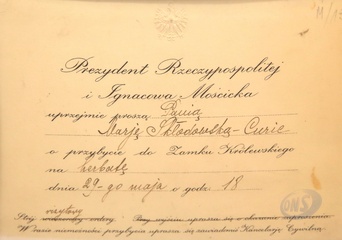 Prezydent Rzeczypospolitej
i Ignacowa Mościcka
uprzejmie proszą Panią
Marję Skłodowską-Curie
o przybycie do Zamku Królewskiego
na herbatę
dnia 29-go maja o godz. 18
wizytowy
Strój wieczorowy, ordery. Przy wejściu uprasza się o okazanie zaproszenia.
W razie niemożności przybycia uprasza się zawiadomić Kancelarję Cywilną.